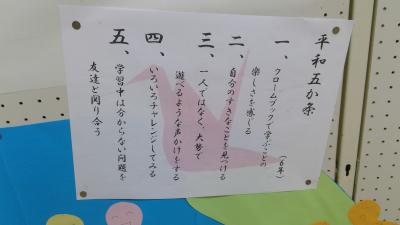 平和五か条
(6年)
一、クロームブックで学ぶことの
楽しさを感じる
二、自分のすきなことを見つける
三、一人ではなく、大勢で
遊べるような声かけをする
四、いろいろチャレンジしてみる
五、学習中は分からない問題を
友達と関り合う